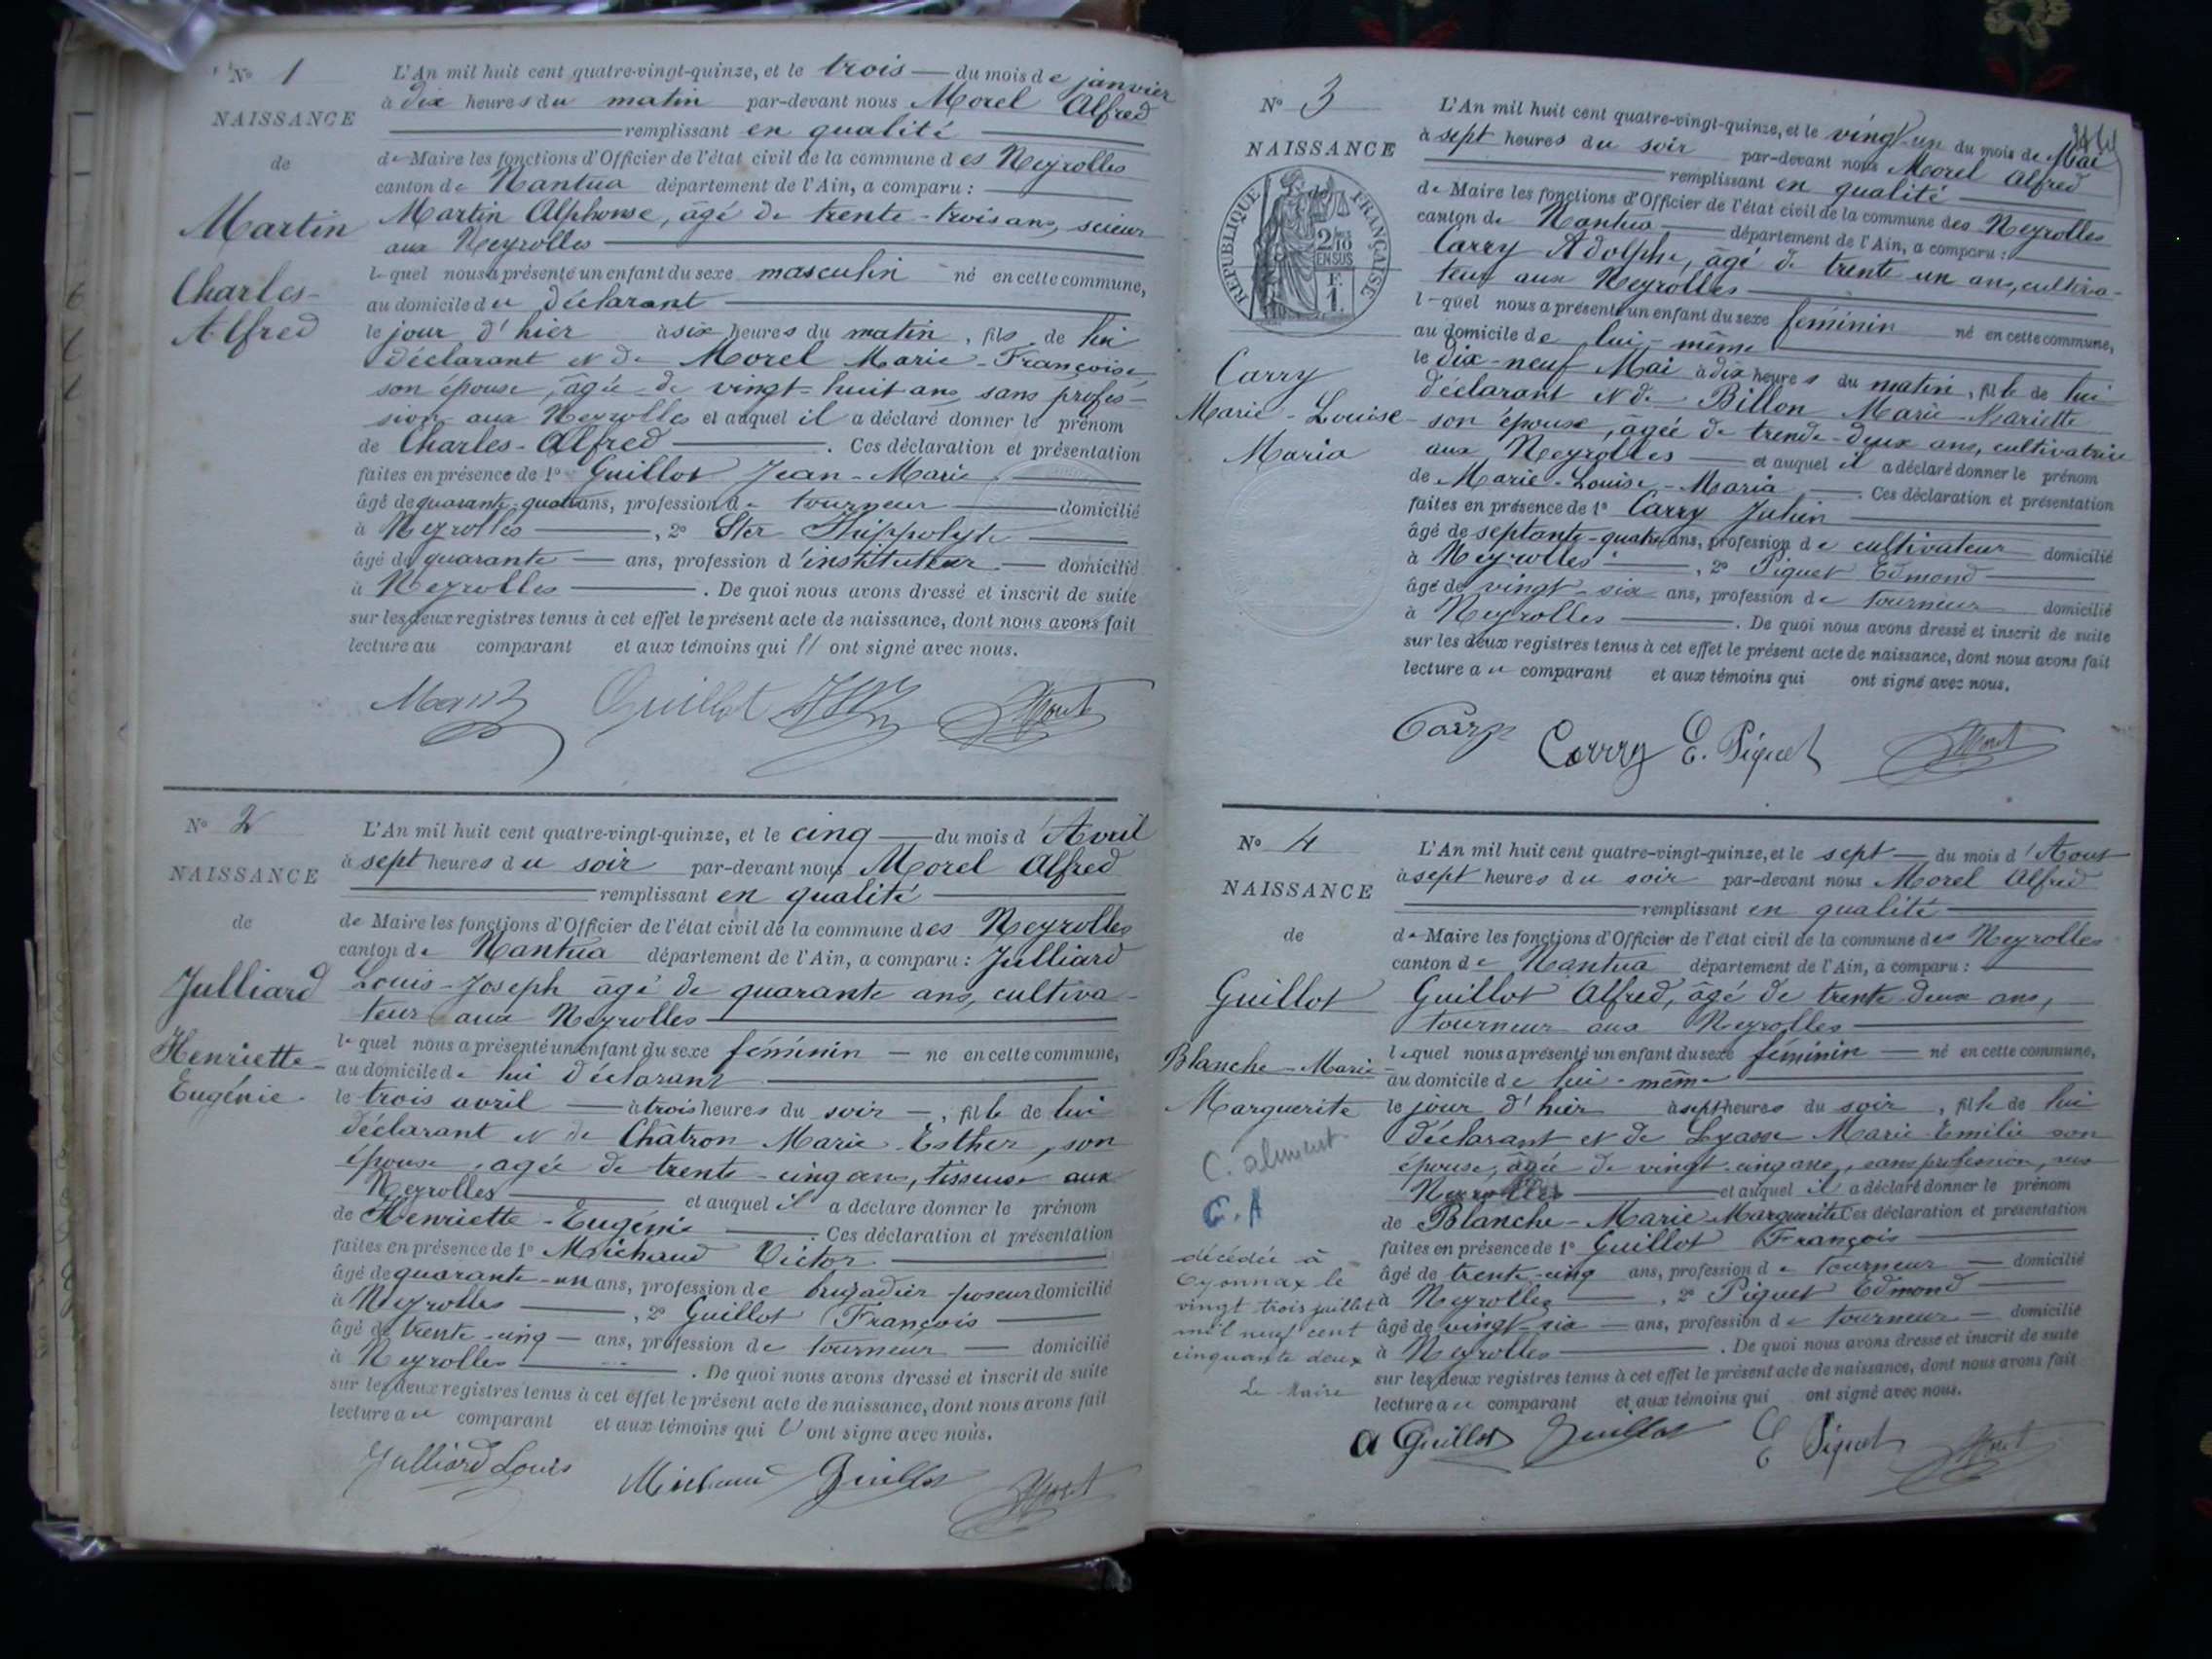 N° 1
NAISSANCE
de
Martin
Charles-
Alfred
L'An mil huit cent quatre-vingt-quinze, et le trois du mois de janvier
à dix heures du matin par-devant nous Morel Alfred
remplissant en qualité
de Maire les fonctions d'Officier de l'état civil de la commune des Neyrolles
canton de Nantua département de l'Ain, a comparu :
Martin Alphonse, âgé de trente-trois ans, scieur
aux Neyrolles
lequel nous a présenté un enfant du sexe masculin né en cette commune,
au domicile du déclarant
le jour d'hier à six heures du matin, fils de lui
déclarant et de Morel Marie-Françoise,
son épouse, âgée de vingt-huit ans, sans profes-
sion aux Neyrolles et auquel il a déclaré donner le prénom
de Charles-Alfred. Ces déclaration et présentation
faites en présence de 1° Guillot Jean-Marie
âgé de quarante-quatre ans, profession de tourneur domicilié
à Neyrolles, 2° Ster Hippolyte
âgé de quarante ans, profession d'instituteur domicilié
à Neyrolles. De quoi nous avons dressé et inscrit de suite
sur les deux registres tenus à cet effet le présent acte de naissance, dont nous avons fait
lecture au comparant et aux témoins qui ont signé avec nous.
Guillot
N° 2
NAISSANCE
de
Julliard
Henriette-
Eugénie
L'An mil huit cent quatre-vingt-quinze, et le cinq du mois d'Avril
à sept heures du soir par-devant nous Morel Alfred
remplissant en qualité
de Maire les fonctions d'Officier de l'état civil de la commune des Neyrolles
canton de Nantua département de l'Ain, a comparu : Julliard
Louis-Joseph âgé de quarante ans, cultiva-
teur aux Neyrolles
lequel nous a présenté un enfant du sexe féminin né en cette commune,
au domicile de lui déclarant
le trois avril à trois heures du soir, fille de lui
déclarant et de Châtron Marie-Esther, son
épouse, agée de trente-cinq ans, tisseuse aux
Neyrolles et auquel il a déclaré donner le prénom
de Henriette-Eugénie. Ces déclaration et présentation
faites en présence de 1° Michaud Victor
âgé de quarante-un ans, profession de brigadier-poseur domicilié
à Neyrolles, 2° Guillot François
âgé de trente-cinq ans, profession de tourneur domicilié
à Neyrolles. De quoi nous avons dressé et inscrit de suite
sur les deux registres tenus à cet effet le présent acte de naissance, dont nous avons fait
lecture au comparant et aux témoins qui ont signé avec nous.
Julliard Louis Michaud Guillot
N° 3
NAISSANCE
de
RÉPUBLIQUE FRANÇAISE
2/10
EN SUS
F.
1.
Carry
Marie-Louise-
Maria
L'An mil huit cent quatre-vingt-quinze, et le vingt-un du mois de Mai
à sept heures du soir par-devant nous Morel Alfred
remplissant en qualité
de Maire les fonctions d'Officier de l'état civil de la commune des Neyrolles
canton de Nantua département de l'Ain, a comparu :
Carry Adolphe, âgé de trente un ans, cultiva-
teur aux Neyrolles
lequel nous a présenté un enfant du sexe féminin né en cette commune,
au domicile de lui-même
le dix-neuf Mai à dix heures du matin, fille de lui
déclarant et de Billon Marie-Mariette
son épouse, âgée de trente-deux ans, cultivatrice
aux Neyrolles et auquel il a déclaré donner le prénom
de Marie-Louise-Maria. Ces déclaration et présentation
faites en présence de 1° Carry Julien
âgé de septante-quatre ans, profession de cultivateur domicilié
à Neyrolles, 2° Piquet Edmond
âgé de vingt-six ans, profession de tourneur domicilié
à Neyrolles. De quoi nous avons dressé et inscrit de suite
sur les deux registres tenus à cet effet le présent acte de naissance, dont nous avons fait
lecture au comparant et aux témoins qui ont signé avec nous.
Carry Carry E. Piquet
N° 4
NAISSANCE
de
Guillot
Blanche-Marie-
Marguerite
C. A
décédée à
Oyonnax le
vingt trois juillet
mil neuf cent
cinquante deux
Le Maire
L'An mil huit cent quatre-vingt-quinze, et le sept du mois d'Aout
à sept heures du soir par-devant nous Morel Alfred
remplissant en qualité
de Maire les fonctions d'Officier de l'état civil de la commune des Neyrolles
canton de Nantua département de l'Ain, a comparu :
Guillot Alfred, âgé de trente-deux ans,
tourneur aux Neyrolles
lequel nous a présenté un enfant du sexe féminin né en cette commune,
au domicile de lui-même
le jour d'hier à sept heures du soir, fille de lui
déclarant et de Marie-Emilie son
épouse, âgée de vingt-cinq ans, sans profession, aux
Neyrolles et auquel il a déclaré donner le prénom
de Blanche-Marie-Marguerite Ces déclaration et présentation
faites en présence de 1° Guillot François
âgé de trente-cinq ans, profession de tourneur domicilié
à Neyrolles, 2° Piquet Edmond
âgé de vingt-six ans, profession de tourneur domicilié
à Neyrolles. De quoi nous avons dressé et inscrit de suite
sur les deux registres tenus à cet effet le présent acte de naissance, dont nous avons fait
lecture au comparant et aux témoins qui ont signé avec nous.
A Guillot Guillot E Piquet